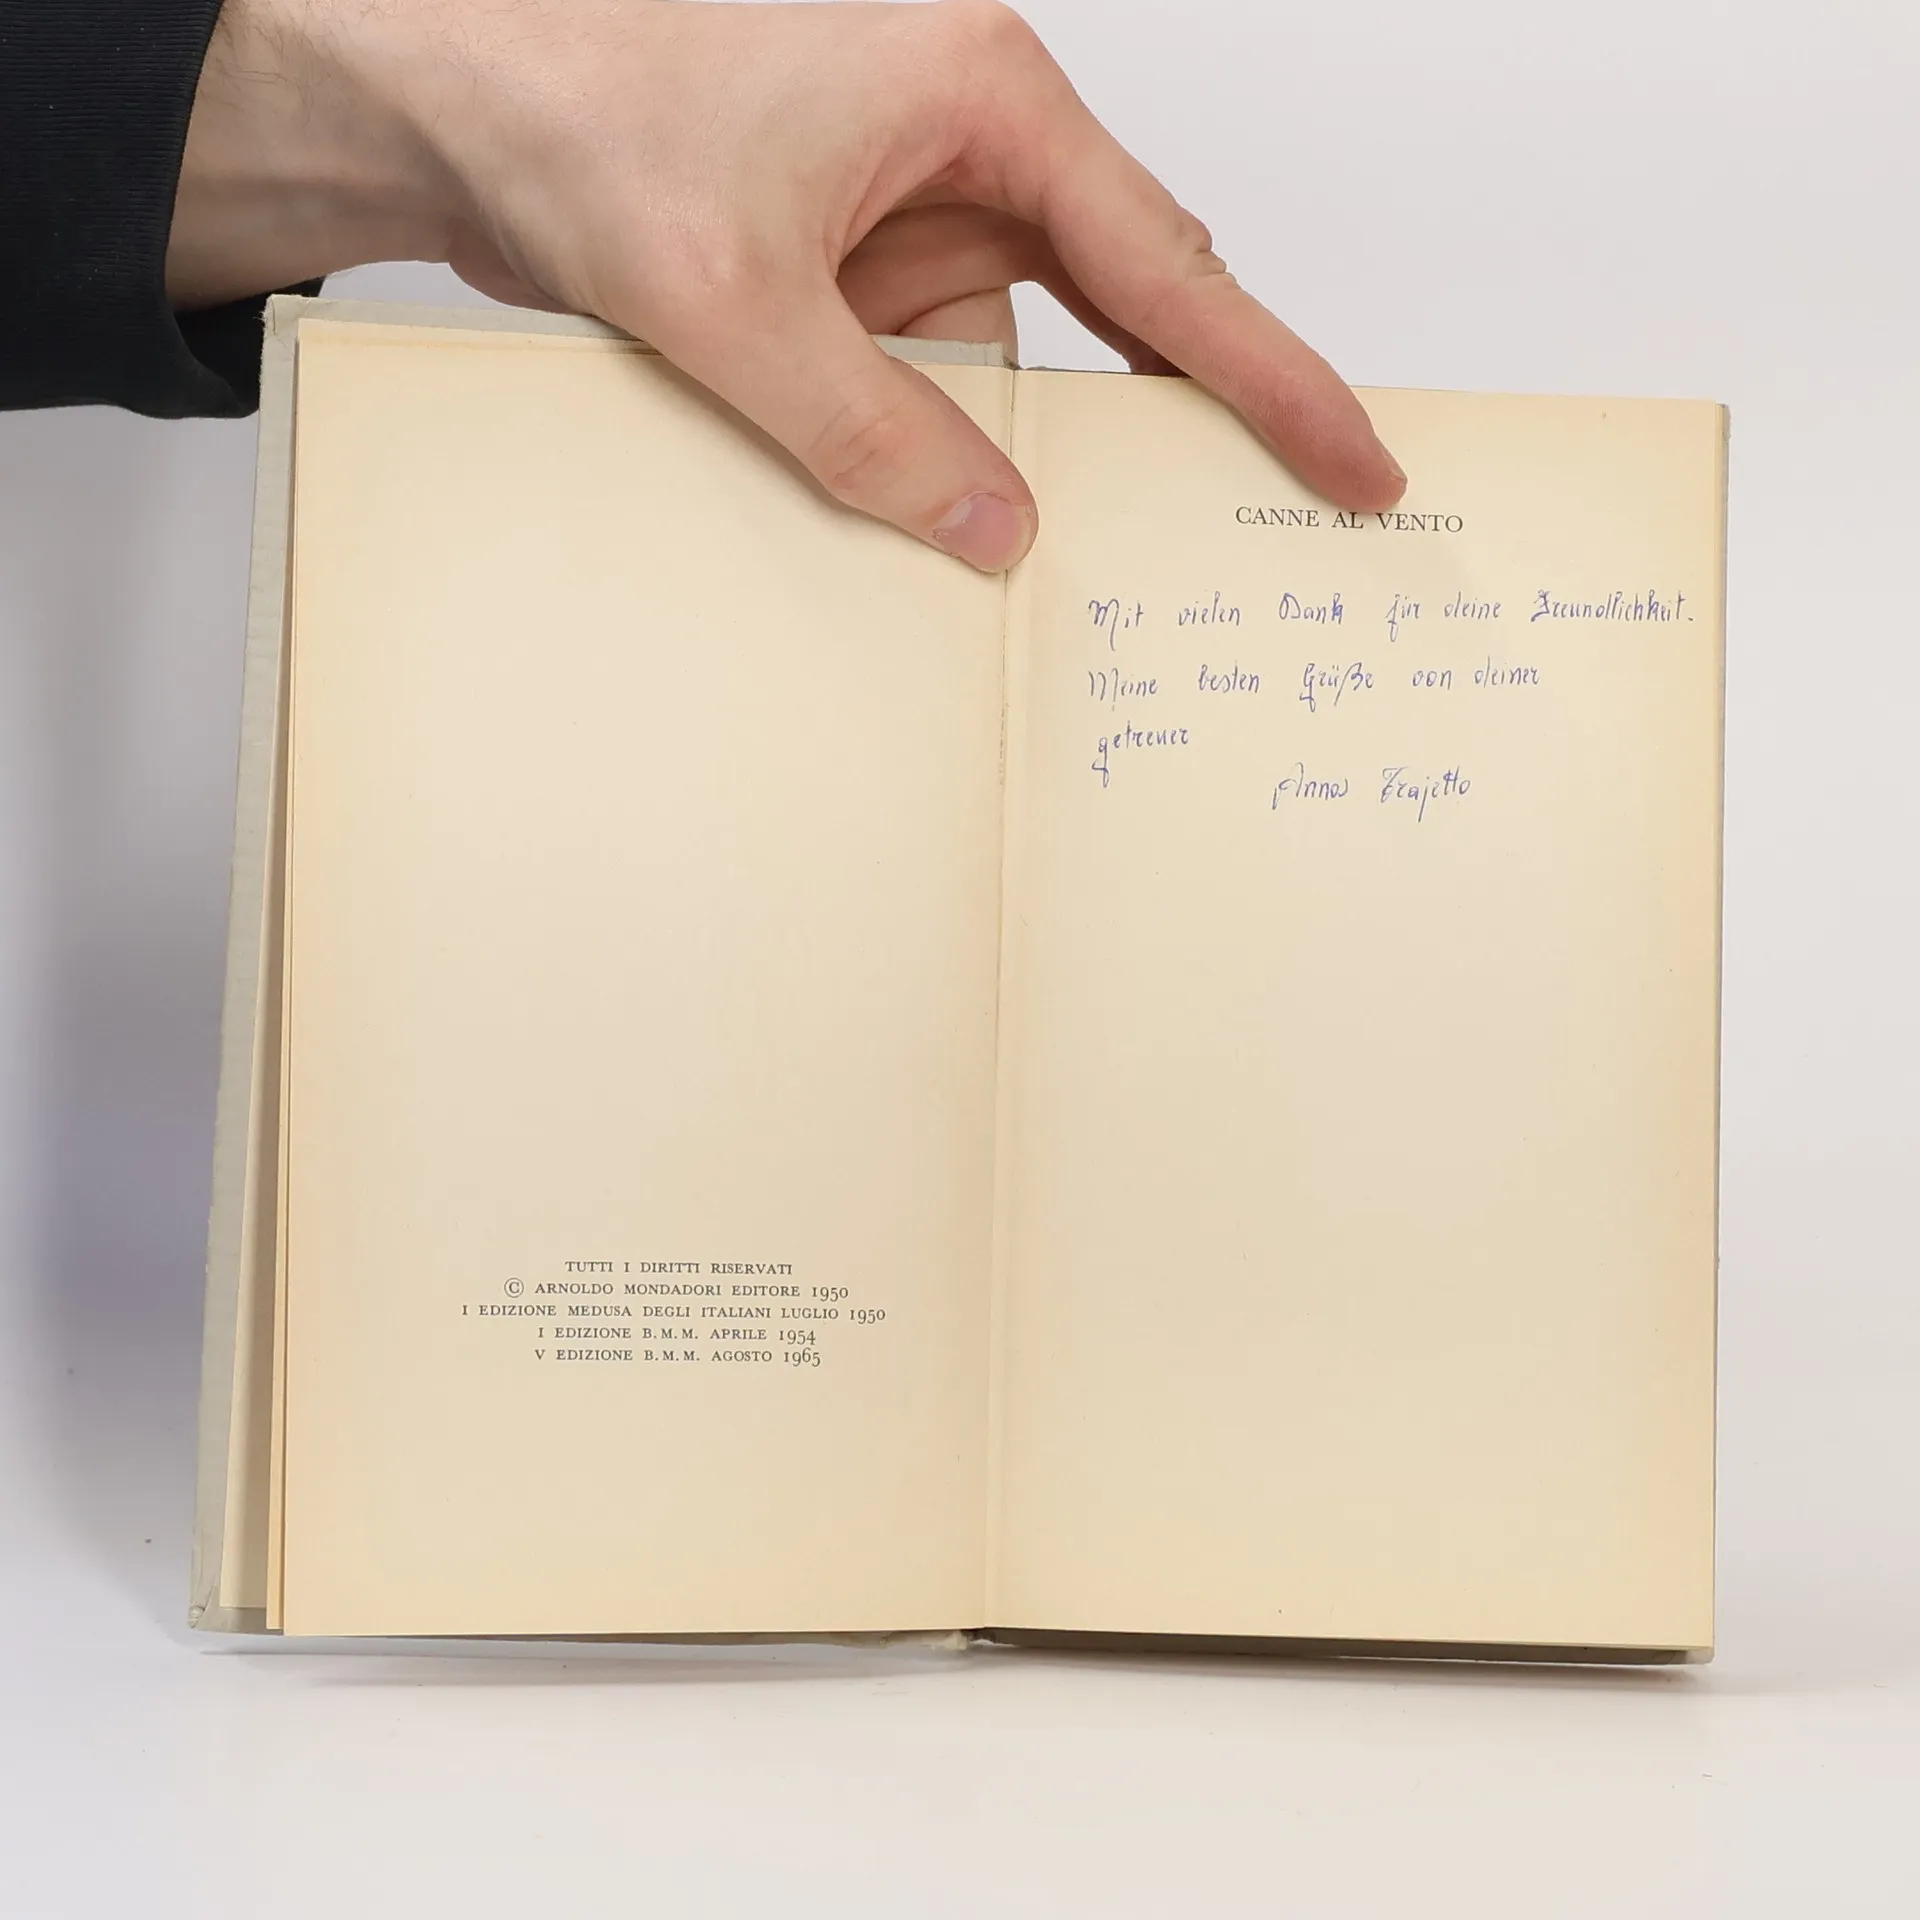 TUTTI I DIRITTI RISERVATI
© ARNOLDO MONDADORI EDITORE 1950
I EDIZIONE MEDUSA DEGLI ITALIANI LUGLIO 1950
I EDIZIONE B.M.M. APRILE 1954
V EDIZIONE B.M.M. AGOSTO 1965
CANNE AL VENTO
Mit vielen Dank für deine Freundlichkeit.
Meine besten Grüße von deiner
getreuer
Anna Trajetto